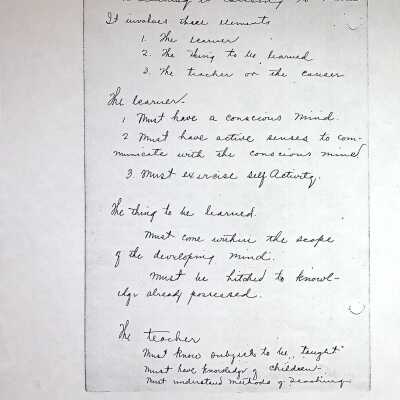 It involves these elements
1. The learner
2. The thing to be learned
3. The teacher or the causer
The learner-
1 Must have a conscious mind.
2 Must have active senses to com-
municate with the conscious mind
3. Must exercise self Activity.
The thing to be learned.
Must come within the scope
of the developing mind.
Must be hitched to knowl-
edge already possessed.
The teacher
Must know subjects to be "taught"
Must have knowledge of children-
Must understand methods of teaching